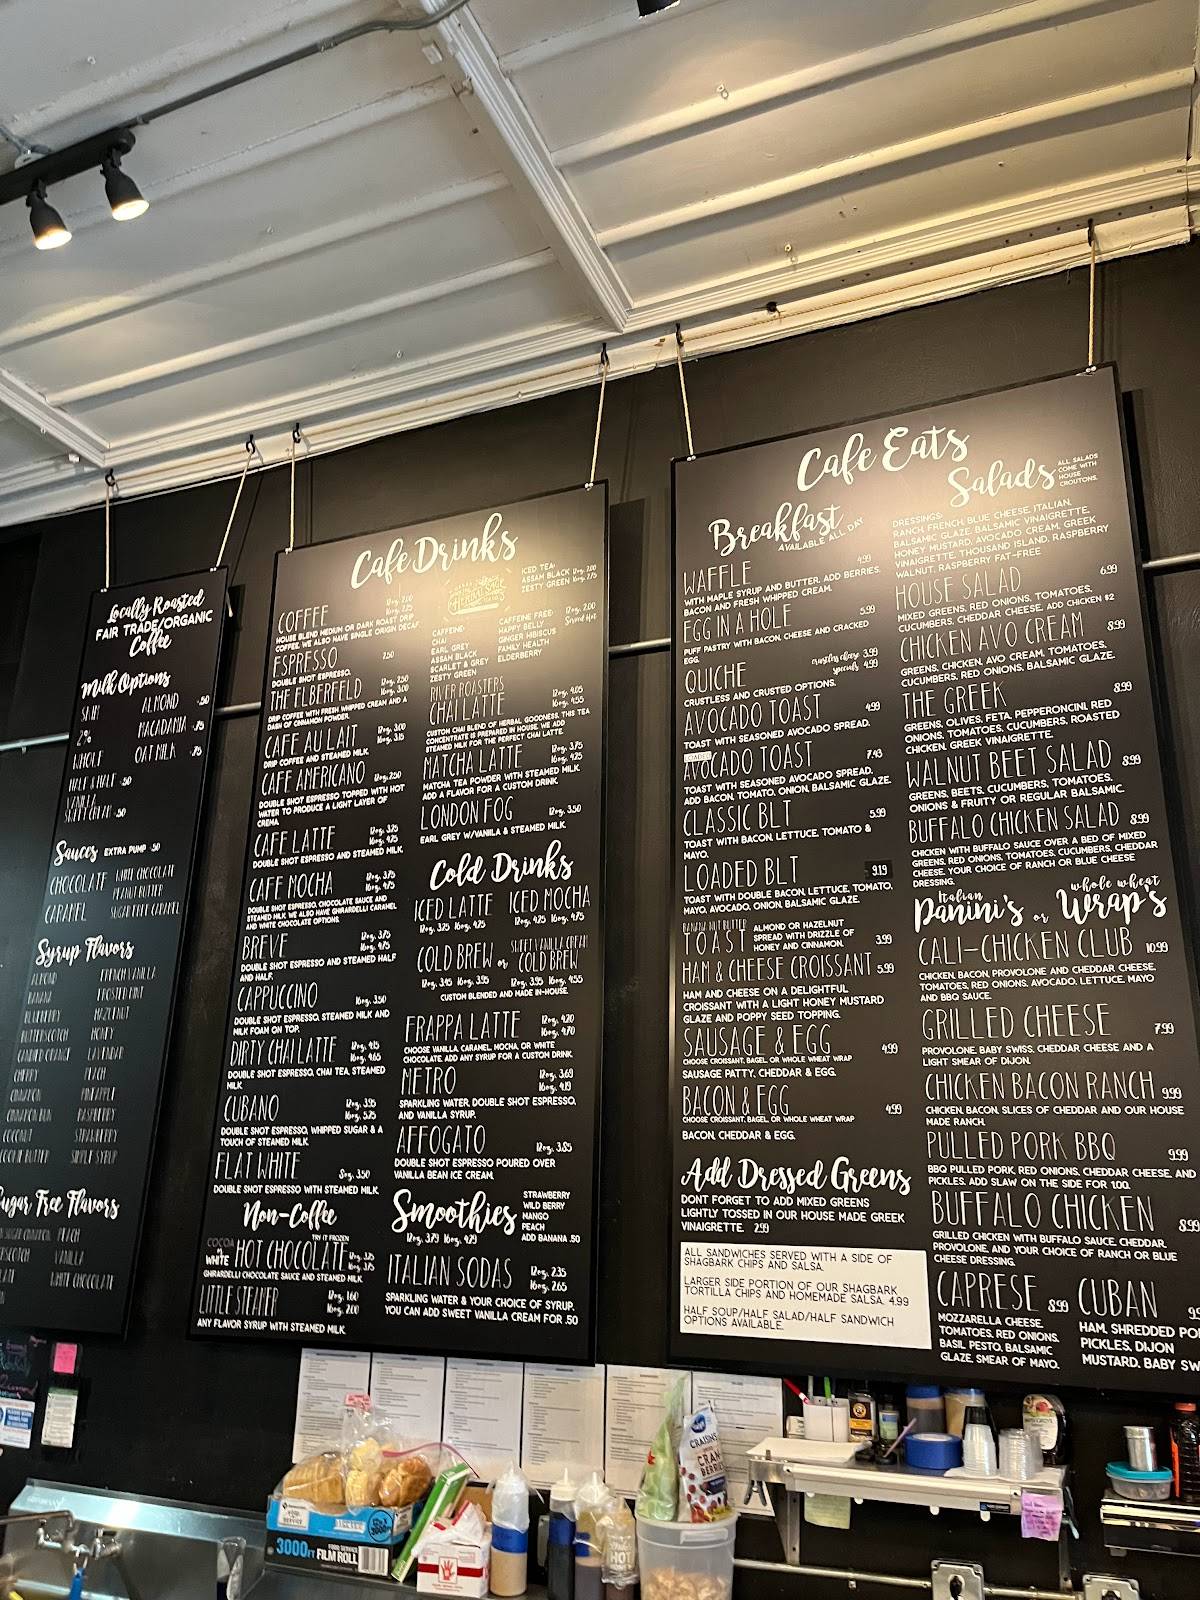 Locally Roasted
FAIR TRADE/ORGANIC
Coffee
Milk Options
SKIM
ALMOND .50
2%
MACADAMIA .75
WHOLE
OAT MILK .75
HALF & HALF .50
VANILLA
SWEET CREAM .50
Sauces EXTRA PUMP .50
CHOCOLATE
WHITE CHOCOLATE
PEANUT BUTTER
CARAMEL
SUGAR FREE CARAMEL
Syrup Flavors
ALMOND
FRENCH VANILLA
BANANA
FROSTED MINT
BLUEBERRY
HAZELNUT
BUTTERSCOTCH
HONEY
LAVENDAR
CHERRY
PEACH
CINNAMON
PINEAPPLE
CINNAMON BUN
RASPBERRY
COCONUT
STRAWBERRY
COOKIE BUTTER
SIMPLE SYRUP
Sugar Free Flavors
PEACH
VANILLA
WHITE CHOCOLATE
Cafe Drinks
COFFEE
12oz. 2.00
16oz. 2.25
HOUSE BLEND MEDIUM OR DARK ROAST DRIP
COFFEE. WE ALSO HAVE SINGLE ORIGIN DECAF
ESPRESSO 2.50
DOUBLE SHOT ESPRESSO.
THE ELBERFELD
12oz. 2.50
16oz. 3.00
DRIP COFFEE WITH FRESH WHIPPED CREAM AND A
DASH OF CINNAMON POWDER.
CAFE AU LAIT
12oz. 3.00
16oz. 3.15
DRIP COFFEE AND STEAMED MILK.
CAFE AMERICANO 12oz. 2.50
DOUBLE SHOT ESPRESSO TOPPED WITH HOT
WATER TO PRODUCE A LIGHT LAYER OF
CREMA.
CAFE LATTE
12oz. 3.75
16oz. 4.75
DOUBLE SHOT ESPRESSO AND STEAMED MILK.
CAFE MOCHA
12oz. 3.75
16oz. 4.75
DOUBLE SHOT ESPRESSO, CHOCOLATE SAUCE AND
STEAMED MILK. WE ALSO HAVE GHIRARDELLI CARAMEL
AND WHITE CHOCOLATE OPTIONS.
BREVE
12oz. 3.75
16oz. 4.75
DOUBLE SHOT ESPRESSO AND STEAMED HALF
AND HALF.
CAPPUCCINO 16oz. 3.50
DOUBLE SHOT ESPRESSO, STEAMED MILK AND
MILK FOAM ON TOP.
DIRTY CHAI LATTE
12oz. 4.15
16oz. 4.65
DOUBLE SHOT ESPRESSO, CHAI TEA, STEAMED
MILK.
CUBANO
12oz. 3.95
16oz. 5.25
DOUBLE SHOT ESPRESSO, WHIPPED SUGAR & A
TOUCH OF STEAMED MILK.
FLAT WHITE 8oz. 3.50
DOUBLE SHOT ESPRESSO WITH STEAMED MILK.
Non-Coffee
TRY IT FROZEN
COCOA
or
WHITE
HOT CHOCOLATE
12oz. 3.25
16oz. 3.75
GHIRARDELLI CHOCOLATE SAUCE AND STEAMED MILK
LITTLE STEAMER
12oz. 1.60
16oz. 2.00
ANY FLAVOR SYRUP WITH STEAMED MILK.
ICED TEA:
ASSAM BLACK 12oz. 2.00
ZESTY GREEN 16oz. 2.75
CAFFEINE:
CHAI
EARL GREY
ASSAM BLACK
SCARLET & GREY
ZESTY GREEN
CAFFEINE FREE:
HAPPY BELLY
GINGER HIBISCUS
FAMILY HEALTH
ELDERBERRY
12oz. 2.00
Served Hot
RIVER ROASTERS
CHAI LATTE
12oz. 4.05
16oz. 4.55
CUSTOM CHAI BLEND OF HERBAL GOODNESS, THIS TEA
CONCENTRATE IS PREPARED IN HOUSE. WE ADD
STEAMED MILK FOR THE PERFECT CHAI LATTE.
MATCHA LATTE
12oz. 3.75
16oz. 4.25
MATCHA TEA POWDER WITH STEAMED MILK.
ADD A FLAVOR FOR A CUSTOM DRINK.
LONDON FOG 12oz. 3.50
EARL GREY W/VANILLA & STEAMED MILK.
Cold Drinks
ICED LATTE
12oz. 3.75 16oz. 4.25
ICED MOCHA
12oz. 4.25 16oz. 4.75
COLD BREW or
SWEET VANILLA CREAM
COLD BREW
12oz. 3.45 16oz. 3.95
12oz. 3.95 16oz. 4.55
CUSTOM BLENDED AND MADE IN-HOUSE.
FRAPPA LATTE
12oz. 4.20
16oz. 4.70
CHOOSE VANILLA, CARAMEL, MOCHA, OR WHITE
CHOCOLATE. ADD ANY SYRUP FOR A CUSTOM DRINK.
METRO
12oz. 3.69
16oz. 4.19
SPARKLING WATER, DOUBLE SHOT ESPRESSO,
AND VANILLA SYRUP.
AFFOGATO 12oz. 3.85
DOUBLE SHOT ESPRESSO POURED OVER
VANILLA BEAN ICE CREAM.
Smoothies
12oz. 3.79 16oz. 4.29
STRAWBERRY
WILD BERRY
MANGO
PEACH
ADD BANANA .50
ITALIAN SODAS
12oz. 2.35
16oz. 2.65
SPARKLING WATER & YOUR CHOICE OF SYRUP.
YOU CAN ADD SWEET VANILLA CREAM FOR .50
Cafe Eats
Breakfast
AVAILABLE ALL DAY
WAFFLE 4.99
WITH MAPLE SYRUP AND BUTTER, ADD BERRIES,
BACON AND FRESH WHIPPED CREAM.
EGG IN A HOLE 5.99
PUFF PASTRY WITH BACON, CHEESE AND CRACKED
EGG.
QUICHE
crustless cheese 3.99
specials 4.99
CRUSTLESS AND CRUSTED OPTIONS.
AVOCADO TOAST 4.99
TOAST WITH SEASONED AVOCADO SPREAD.
LOADED
AVOCADO TOAST 7.43
TOAST WITH SEASONED AVOCADO SPREAD,
ADD BACON, TOMATO, ONION, BALSAMIC GLAZE.
CLASSIC BLT 5.99
TOAST WITH BACON, LETTUCE, TOMATO &
MAYO.
LOADED BLT 9.19
TOAST WITH DOUBLE BACON, LETTUCE, TOMATO,
MAYO, AVOCADO, ONION, BALSAMIC GLAZE.
BANANA NUT BUTTER
TOAST
ALMOND OR HAZELNUT
SPREAD WITH DRIZZLE OF
HONEY AND CINNAMON. 3.99
HAM & CHEESE CROISSANT 5.99
HAM AND CHEESE ON A DELIGHTFUL
CROISSANT WITH A LIGHT HONEY MUSTARD
GLAZE AND POPPY SEED TOPPING.
SAUSAGE & EGG 4.99
CHOOSE CROISSANT, BAGEL, OR WHOLE WHEAT WRAP
SAUSAGE PATTY, CHEDDAR & EGG.
BACON & EGG 4.99
CHOOSE CROISSANT, BAGEL, OR WHOLE WHEAT WRAP
BACON, CHEDDAR & EGG.
Add Dressed Greens
DONT FORGET TO ADD MIXED GREENS
LIGHTLY TOSSED IN OUR HOUSE MADE GREEK
VINAIGRETTE. 2.99
ALL SANDWICHES SERVED WITH A SIDE OF
SHAGBARK CHIPS AND SALSA.
LARGER SIDE PORTION OF OUR SHAGBARK
TORTILLA CHIPS AND HOMEMADE SALSA. 4.99
HALF SOUP/HALF SALAD/HALF SANDWICH
OPTIONS AVAILABLE.
Salads
ALL SALADS
COME WITH
HOUSE
CROUTONS.
DRESSINGS:
RANCH, FRENCH, BLUE CHEESE, ITALIAN,
BALSAMIC GLAZE, BALSAMIC VINAIGRETTE,
HONEY MUSTARD, AVOCADO CREAM, GREEK
VINAIGRETTE, THOUSAND ISLAND, RASPBERRY
WALNUT, RASPBERRY FAT-FREE
HOUSE SALAD 6.99
MIXED GREENS, RED ONIONS, TOMATOES,
CUCUMBERS, CHEDDAR CHEESE, ADD CHICKEN $2
CHICKEN AVO CREAM 8.99
GREENS, CHICKEN, AVO CREAM, TOMATOES,
CUCUMBERS, RED ONIONS, BALSAMIC GLAZE.
THE GREEK 8.99
GREENS, OLIVES, FETA, PEPPERONCINI, RED
ONIONS, TOMATOES, CUCUMBERS, ROASTED
CHICKEN, GREEK VINAIGRETTE.
WALNUT BEET SALAD 8.99
GREENS, BEETS, CUCUMBERS, TOMATOES,
ONIONS & FRUITY OR REGULAR BALSAMIC.
BUFFALO CHICKEN SALAD 8.99
CHICKEN WITH BUFFALO SAUCE OVER A BED OF MIXED
GREENS, RED ONIONS, TOMATOES, CUCUMBERS, CHEDDAR
CHEESE. YOUR CHOICE OF RANCH OR BLUE CHEESE
DRESSING.
Italian
Panini's or
whole wheat
Wrap's
CALI-CHICKEN CLUB 10.99
CHICKEN, BACON, PROVOLONE AND CHEDDAR CHEESE,
TOMATOES, RED ONIONS, AVOCADO, LETTUCE, MAYO
AND BBQ SAUCE.
GRILLED CHEESE 7.99
PROVOLONE, BABY SWISS, CHEDDAR CHEESE AND A
LIGHT SMEAR OF DIJON.
CHICKEN BACON RANCH 9.99
CHICKEN, BACON, SLICES OF CHEDDAR AND OUR HOUSE
MADE RANCH.
PULLED PORK BBQ 9.99
BBQ PULLED PORK, RED ONIONS, CHEDDAR CHEESE, AND
PICKLES. ADD SLAW ON THE SIDE FOR 1.00.
BUFFALO CHICKEN 8.99
GRILLED CHICKEN WITH BUFFALO SAUCE, CHEDDAR,
PROVOLONE, AND YOUR CHOICE OF RANCH OR BLUE
CHEESE DRESSING.
CAPRESE 8.99
MOZZARELLA CHEESE,
TOMATOES, RED ONIONS,
BASIL PESTO, BALSAMIC
GLAZE, SMEAR OF MAYO.
CUBAN
HAM, SHREDDED PO
PICKLES, DIJON
MUSTARD, BABY SW
CRAISINS
CRAN
BERRIES
3000FT FILM ROLL
HOT